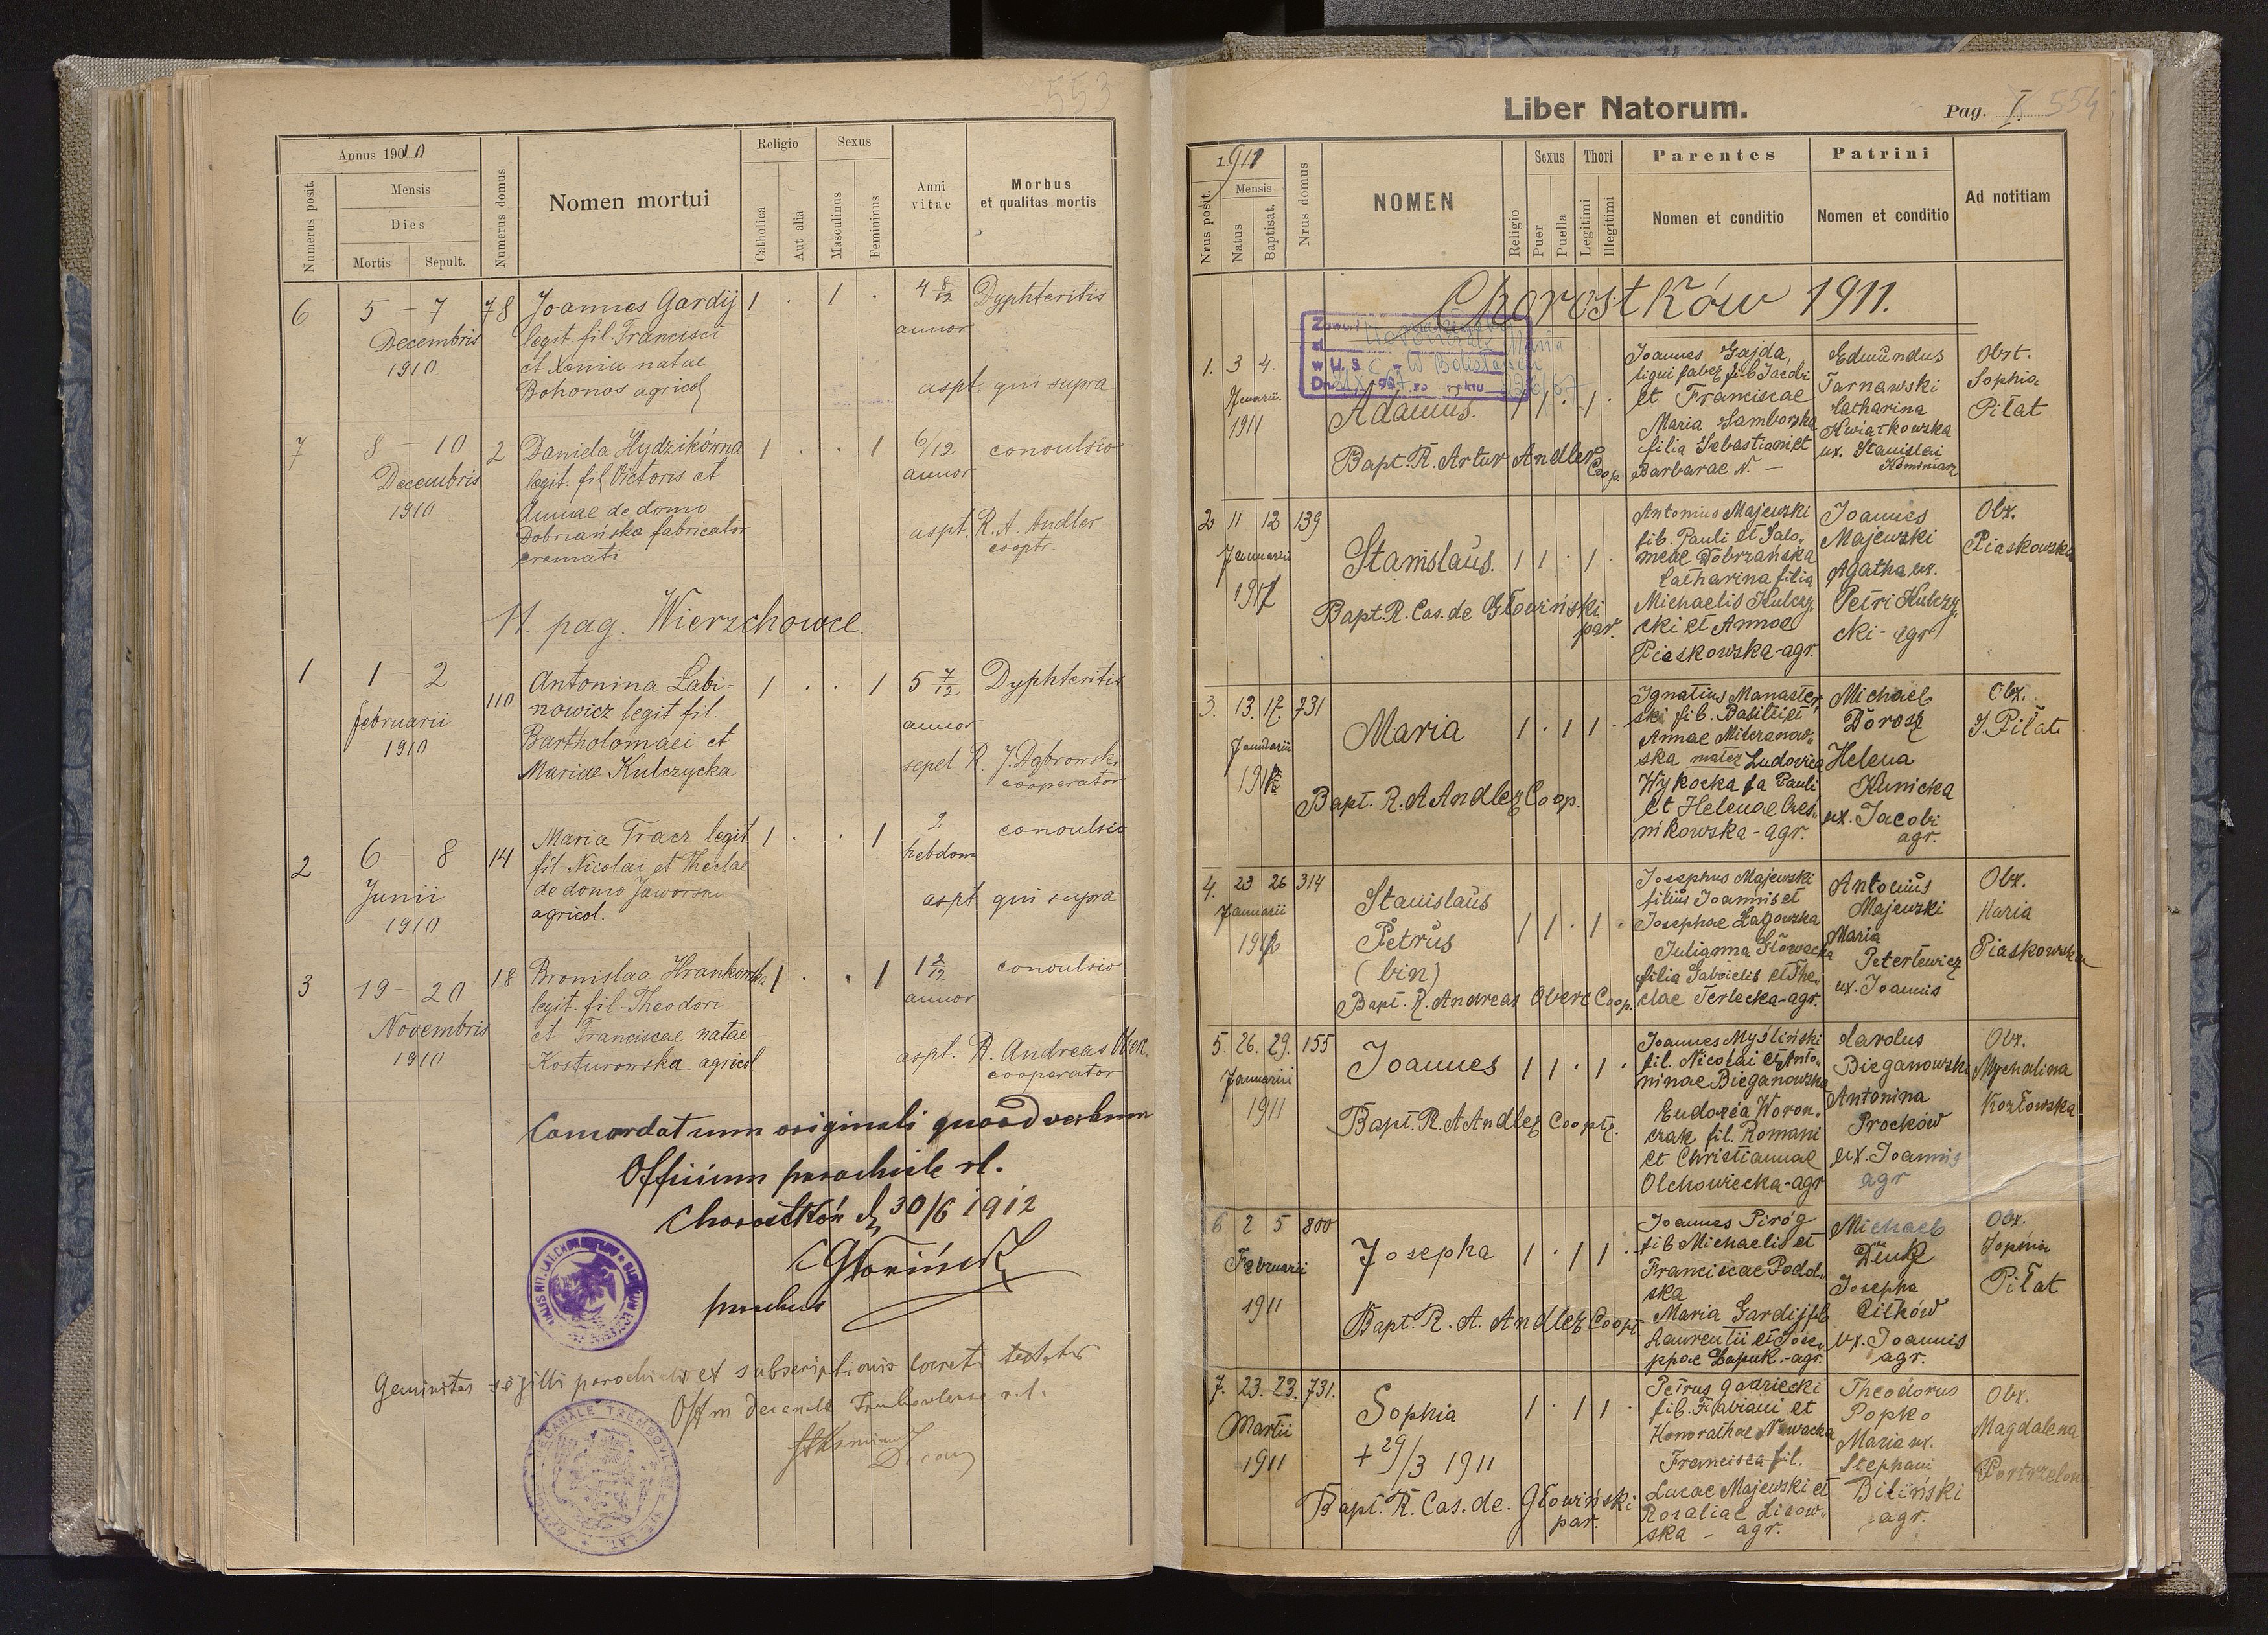 553
Annus 1910
Numerus posit.
Mensis
Dies
Mortis
Sepult.
Numerus domus
Nomen mortui
Religio
Catholica
Aut alia
Sexus
Masculinus
Femininus
Anni
vitae
Morbus
et qualitas mortis
6 5 - 7 78 Joannes Gardij 1 . 1 . 4 8/12 Dyphteritis
Decembris legit. fil. Francisci annor
1910 et Xenia natae
Bohonos agricol aspt. qui supra
7 8 - 10 2 Daniela Hydzikówna 1 . . 1 6/12 convulsio
Decembris legit. fil Victoris et annor
1910 Annae de domo
Dobrzańska fabricator aspt. R. A. Andler
cremati cooptr.
11. pag. Wierzchowce
1 1 - 2 110 Antonina Labi- 1 . . 1 5 7/12 Dyphteritis
februarii nowicz legit fil. annor
1910 Bartholomaei et
Mariae Kulczycka sepel R. J. Dąbrowski
cooperator
2 6 - 8 14 Maria Tracz legit 1 . . 1 2 convulsio
Junii fil Nicolai et Theclae hebdom
1910 de domo Jaworska
agricol. aspt qui supra
3 19 - 20 18 Bronislaa Hrankowska 1 . . 1 1 2/12 convulsio
Novembris legit. fil. Theodori annor
1910 et Franciscae natae
Kosturowska agricol aspt. R. Andreas Oberc
cooperator
Concordat cum originali quoad verbum
Officium parochiale rl.
Chorostków d, 30/6 1912
CGłowiński
parochus
Genuinitas sigilli parochialis et subscriptionis loci testatur
Offm decanale Trembowlense r.l.
Decan
DECANALE TREMBOVL
Liber Natorum.
Pag. I. 554
1911
Nrus posit.
Mensis
Natus
Baptisat.
Nrus domus
NOMEN
Religio
Sexus
Puer
Puella
Thori
Legitimi
Illegitimi
Parentes
Nomen et conditio
Patrini
Nomen et conditio
Ad notitiam
Chorostków 1911.
1. 3 4. Januarii. 1911
Adamus. 1 1 . 1 .
Bapt. R. Artur Andler Coop.
Joannes Gajda,
ligni faber fil Jacobi
et Franciscae
Maria Samborska
filia Sebastiani et
Barbarae N. -
Edmundus
Tarnawski
Catharina
Kwiatkowska
ux. Stanislai
Kominiarz
Obst.
Sophia
Piłat
2 11 12 139 Januarii 1911
Stanislaus. 1 1 . 1 .
Bapt. R. Cas. de Głowiński
par.
Antonius Majewski
fil. Pauli et Salo-
meae Dobrzańska
Catharina filia
Michaelis Kulczy-
cki et Annae
Piaskowska-agr.
Joannes
Majewski
Agatha ux.
Petri Kulczy-
cki - agr
Obx.
Piaskowska
3. 13. 17. 731 Januarii 1911
Maria 1 . 1 1 .
Bapt. R. A Andler Coop.
Ignatius Manaster-
ski fil. Basilii et
Annae Milczanow-
ska mater Ludovica
Wykocka fa Pauli
et Helenae Cres-
nikowska - agr.
Michael
Dorosz
Helena
Kunicka
ux. Jacobi
agr.
Obx.
S. Piłat
4. 23 26 314 Januarii 1911
Stanislaus
Petrus 1 1 . 1 .
(bin)
Bapt. R. Andreas Oberc Coop.
Josephus Majewski
filius Joannis et
Josephae Łatyowska
Julianna Głowacka
filia Gabrielis et The-
clae Terlecka-agr.
Antonius
Majewski
Maria
Peterlewicz
ux. Joannis
Obx.
Maria
Piaskowska
5. 26. 29. 155 Januarii 1911
Joannes 1 1 . 1 .
Bapt. R. A Andler Cooptr.
Joannes Mysliński
fil. Nicolai et Anto-
ninae Bieganowska
Eudoxia Woron-
czak fil. Romani
et Christiannae
Olchowiecka-agr
Carolus
Bieganowski
Antonina
Proćków
ux. Joannis
agr
Obx.
Mychalina
Kozłowska
6 2 5 800 Februarii 1911
Josepha 1 . 1 1 .
Bapt. R. A. Andler Coopt.
Joannes Piróg
fil Michaelis et
Franciscae Podol-
ska
Maria Gardij fil
Laurentii et Jose-
ppae Łapuk.-agr.
Michael
Josepha
Cilków
ux. Joannis
agr.
Obx.
Sophia
Piłat
7. 23. 23. 731. Martii 1911
Sophia 1 . 1 1 .
+ 29/3 1911
Bapt. R. Cas. de. Głowiński
par.
Petrus Godziecki
fil. Flaviani et
Honorathae Nowacka
Francisca fil.
Lucae Majewski et
Rosaliae Lisow-
ska - agr.
Theodorus
Popko
Maria ux.
Stephani
Biliński
agr.
Obx.
Magdalena